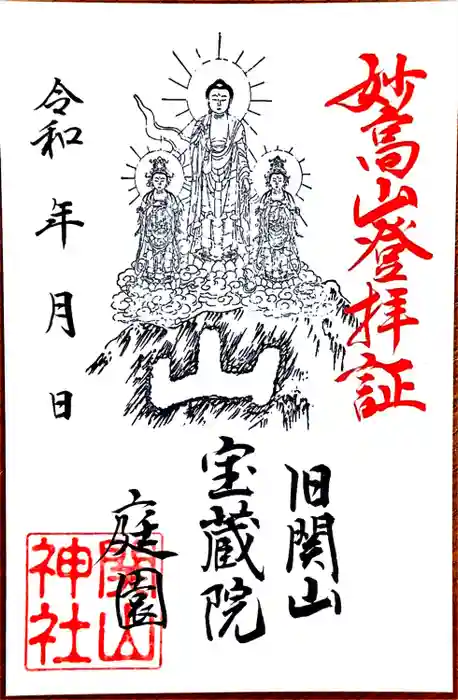 妙高山登拝証
山
令和 年 月 日
旧関山
宝蔵院
庭園
関山
神社